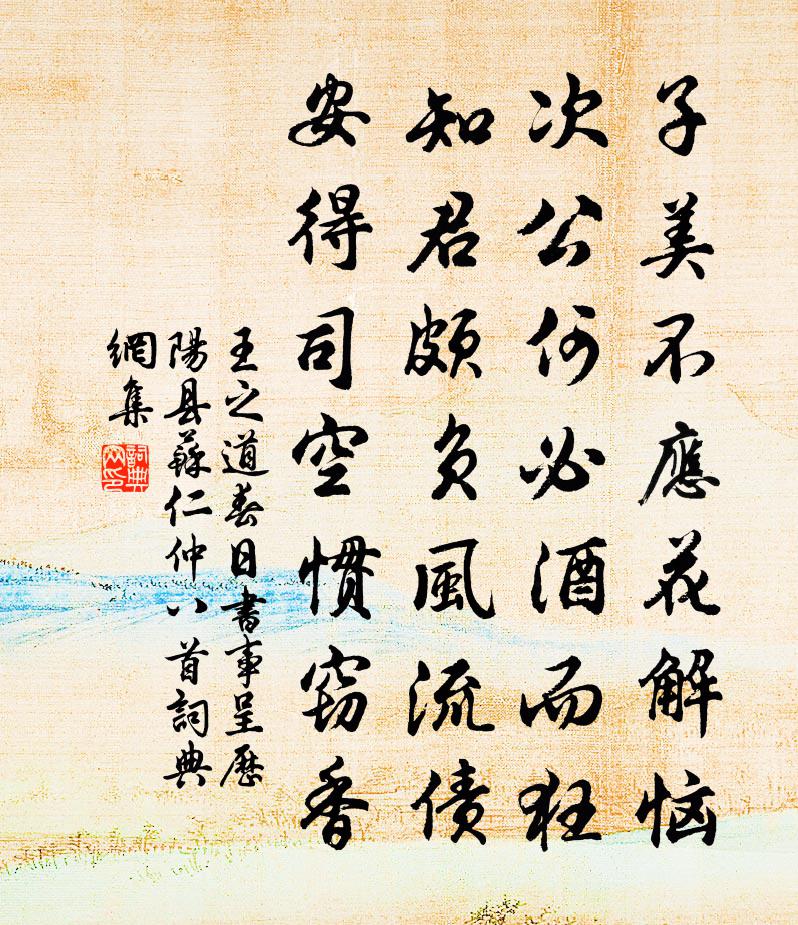 子美不應花解恼
次公何必酒而狂
知君頗負風流債
安得司空慣窃香
王之道春日書事呈歷
陽县蘇仁仲八首詞典
網集
詞典
网印